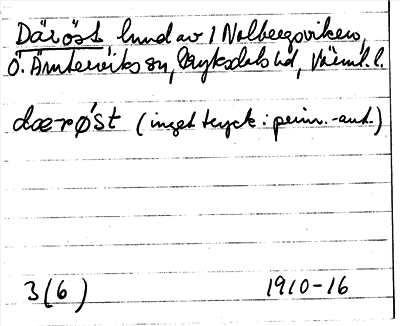 Däröst lund av / Nolbergsviken,
Ö. Ämterviks sn, Fryksdals hd, Värml. l.
dærǿst (inget tryck: prim.-ant.)
3(6) 1910-16